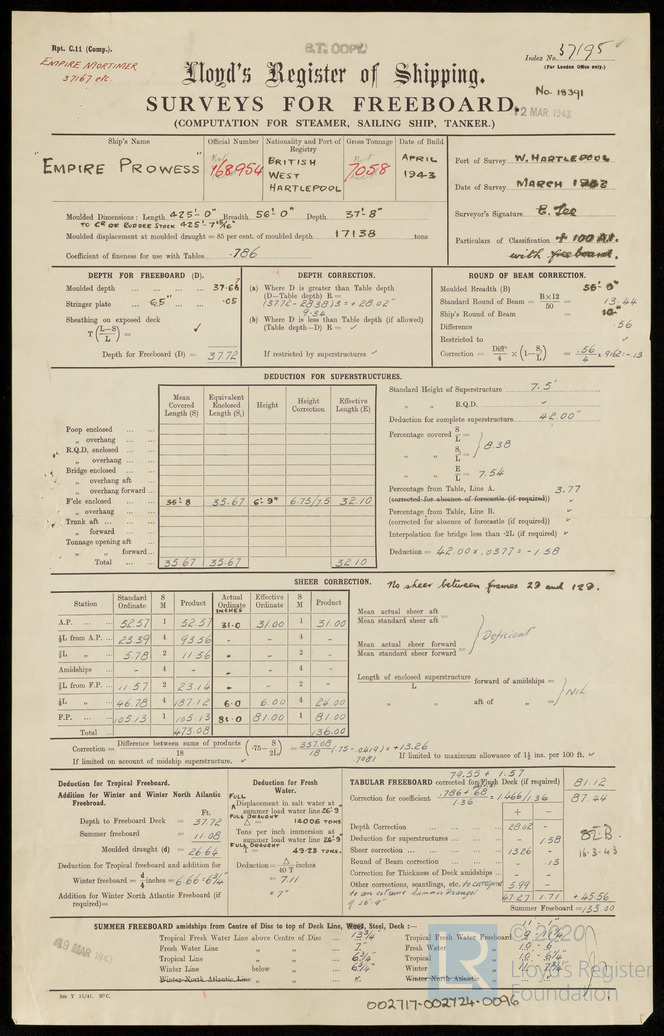 Rpt. C.11 (Comp.).
B.T. COPY
EMPIRE MORTIMER
37167 etc
Index No. 37195
(For London Office only.)
Lloyd's Register of Shipping.
No. 18391
SURVEYS FOR FREEBOARD.
12 MAR 1943
(COMPUTATION FOR STEAMER, SAILING SHIP, TANKER.)
Ship's Name
Official Number
Nationality and Port of Registry
Gross Tonnage
Date of Build
"EMPIRE PROWESS"
168954
BRITISH
WEST
HARTLEPOOL
7058
APRIL
1943
Port of Survey W. HARTLEPOOL
Date of Survey MARCH
Surveyor's Signature
Particulars of Classification + 100 A1.
with freeboard.
Moulded Dimensions: Length 425'- 0" Breadth 56'- 0" Depth 37'- 8"
TO CR OF RUDDER STOCK 425'-
Moulded displacement at moulded draught = 85 per cent. of moulded depth 17138 tons
Coefficient of fineness for use with Tables .786
DEPTH FOR FREEBOARD (D).
Moulded depth ... 37.66
Stringer plate ... .65" .05
Sheathing on exposed deck
T (L—S / L) = ✓
Depth for Freeboard (D) = 37.72
DEPTH CORRECTION.
(a) Where D is greater than Table depth
(D—Table depth) R =
(37.72 - 28.38) 3 = + 28.02"
9.34
(b) Where D is less than Table depth (if allowed)
(Table depth—D) R = ✓
If restricted by superstructures ✓
ROUND OF BEAM CORRECTION.
Moulded Breadth (B) 56'- 0"
Standard Round of Beam = B×12 / 50 = 13.44
Ship's Round of Beam =
Difference .56
Restricted to ✓
Correction = Diff / 4 × (1— S₁ / L) = .56 / 4 × .9162 = -.13
DEDUCTION FOR SUPERSTRUCTURES.
Mean Covered Length (S)
Equivalent Enclosed Length (S₁)
Height
Height Correction
Effective Length (E)
Poop enclosed ...
„ overhang ...
R.Q.D. enclosed ...
„ overhang ...
Bridge enclosed ...
„ overhang aft
„ overhang forward ...
F'cle enclosed ... 35'- 8 35.67 6'- 9" 6.75/7.5 32.10
„ overhang ...
Trunk aft ...
„ forward ...
Tonnage opening aft
„ „ forward ...
Total ... 35.67 35.67 32.10
Standard Height of Superstructure 7.5'
„ „ R.Q.D. ✓
Deduction for complete superstructure 42.00"
Percentage covered S / L =
„ „ S₁ / L = 8.38
„ „ E / L = 7.54
Percentage from Table, Line A. 3.77
(corrected for absence of forecastle (if required))
Percentage from Table, Line B. ✓
(corrected for absence of forecastle (if required)) ✓
Interpolation for bridge less than ·2L (if required) ✓
Deduction = 42.00 x .0377 = -1.58
SHEER CORRECTION. No sheer between frames 29 and 129.
Station
Standard Ordinate
S M
Product
Actual Ordinate INCHES
Effective Ordinate
S M
Product
A.P. ... 52.57 1 52.57 31.0 31.00 1 31.00
⅙L from A.P. ... 23.39 4 93.56 - - 4 -
⅓L „ ... 5.78 2 11.56 - - 2 -
Amidships ... - 4 - - - 4 -
⅓L from F.P. ... 11.57 2 23.14 - - 2 -
⅙L „ ... 46.78 4 187.12 6.0 6.00 4 24.00
F.P. ... 105.13 1 105.13 81.0 81.00 1 81.00
Total ... 473.08 136.00
Mean actual sheer aft / Mean standard sheer aft =
Mean actual sheer forward / Mean standard sheer forward =
Deficient
Length of enclosed superstructure / L forward of amidships =
„ „ aft of „ =
NIL
Correction = Difference between sums of products / 18 (·75— S / 2L) = 337.08 / 18 (.75 - .0419) = +13.26
.7081
If limited on account of midship superstructure. ✓
If limited to maximum allowance of 1½ ins. per 100 ft. ✓
Deduction for Tropical Freeboard.
Addition for Winter and Winter North Atlantic Freeboard.
Ft.
Depth to Freeboard Deck = 37.72
Summer freeboard = 11.08
Moulded draught (d) = 26.64
Deduction for Tropical freeboard and addition for
Winter freeboard = d / 4 = 6.66 = 6¾"
Addition for Winter North Atlantic Freeboard (if required)=
Deduction for Fresh Water.
FULL
Displacement in salt water at summer load water line 26'-9
FULL DRAUGHT
△ = TONS
Tons per inch immersion at summer load water line 26'-9
FULL DRAUGHT
T = 49.23 TONS.
Deduction = △ / 40 T
= 7.11
= 7"
79.55 + 1.57
TABULAR FREEBOARD corrected for Flush Deck (if required) 81.12
Correction for coefficient .786 + .68 / 1.36 = 1.466 / 1.36 87.44
+ -
Depth Correction ... 28.02 -
Deduction for superstructures ... - 1.58
Sheer correction ... 13.26 -
Round of Beam correction ... - .13
Correction for Thickness of Deck amidships ... - -
Other corrections, scantlings, etc. to correspond 5.99 -
to an extreme Summer Draught
of 26'-9"
47.27 1.71 +45.56
Summer Freeboard = 133.00
16.3.43
SUMMER FREEBOARD amidships from Centre of Disc to top of Deck Line, Wood, Steel, Deck :—
Tropical Fresh Water Line above Centre of Disc ... 13¾"
Fresh Water Line „ „ ... 7"
Tropical Line „ „ ... 6¾"
Winter Line below „ ... 6¾"
Winter North Atlantic Line „ „
Tropical Fresh Water Freeboard
Fresh Water „ 10 - 6
Tropical „
Winter „
Winter North Atlantic „
19 MAR 1943
2m T 11/41. N°C.
002717-002724-0096
R
© 2020
Lloyd's Register
Foundation